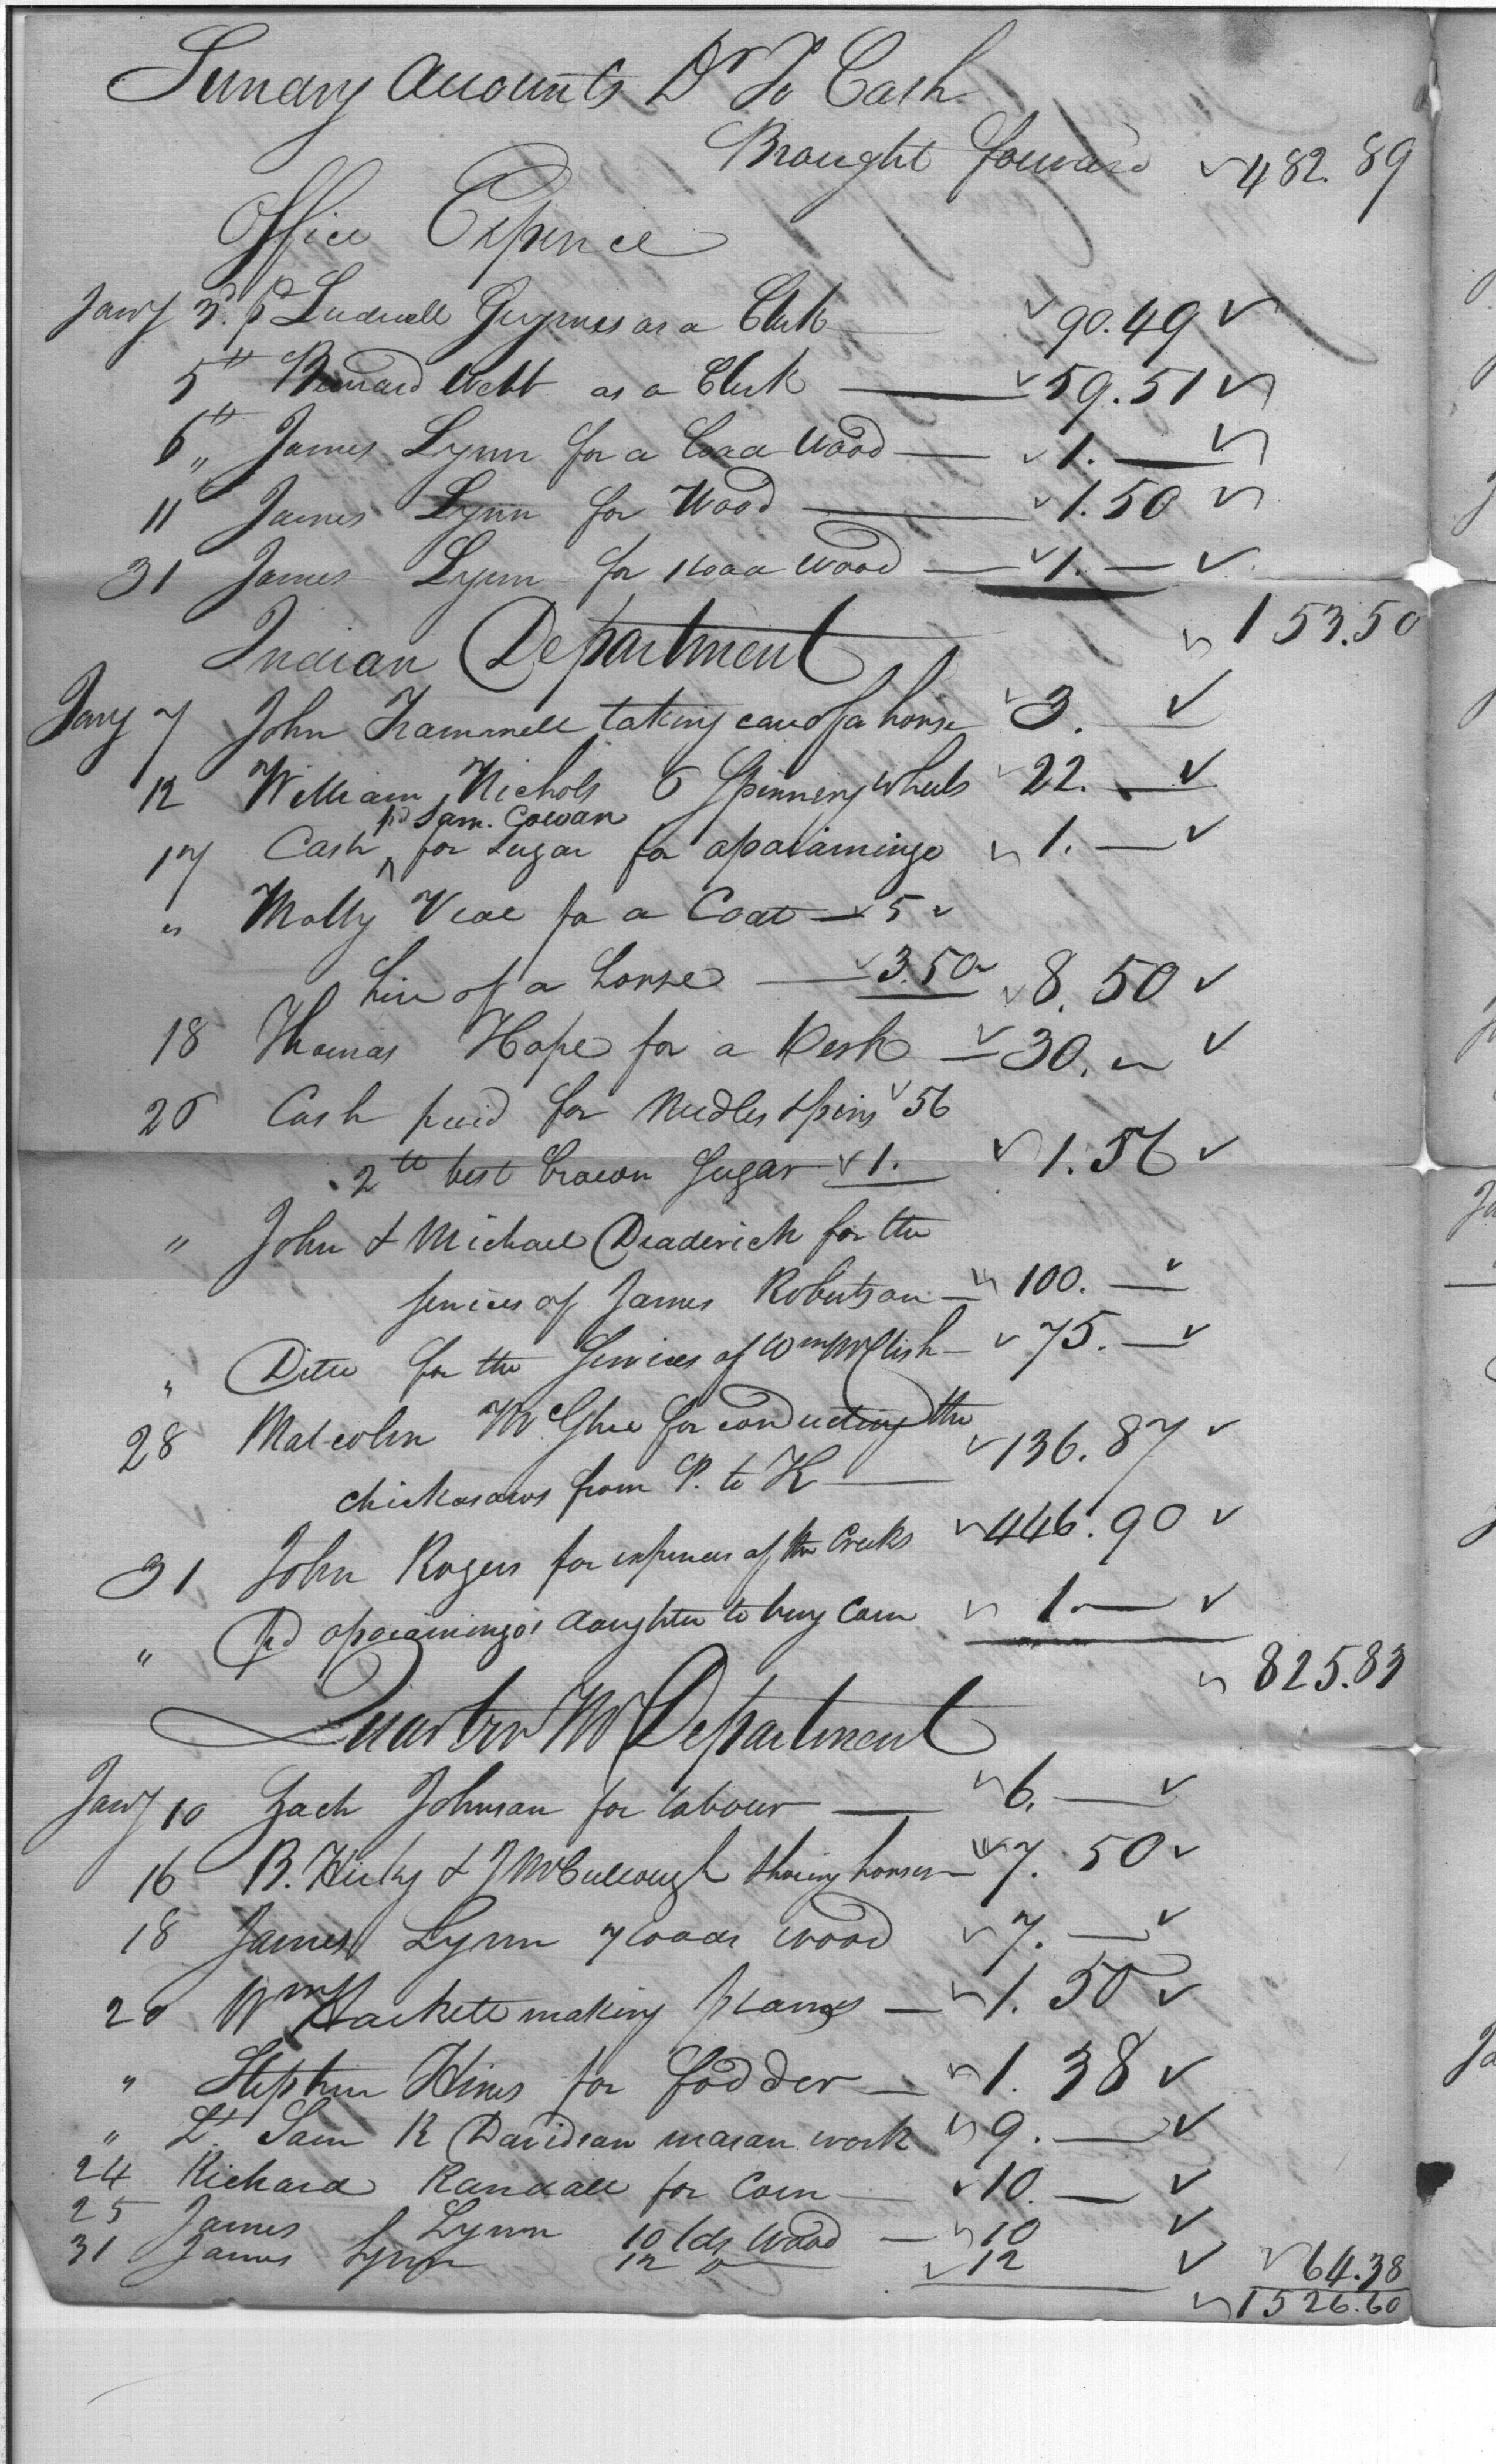 Sundry Accounts Dr To Cash
Brought forward 482.89
Office Expence
Jany 3d. pd Ludwell Grymes as a Clerk 90.49
5th Bernard Webb as a Clerk 59.51
6th " James Lynn for a Load Wood 1.
11 James Lynn for Wood 1.50
31 James Lynn for 1 Load Wood 1.
153.50
Indian Department
Jany 7 John Trammell taking care of a horse 3.
12 William Nichols 6 Spinning Wheels 22.
pd Sam. Cowan
17 Cash ^ for Sugar for opaiamingo 1.
" Molly Veal for a Coat 5
hire of a horse 3.50 8.50
18 Thomas Hope for a Desk 30.
26 Cash paid for Needles & pins 56
2 lb best brown Sugar 1. 1.56
" John & Michael Deaderick for the
services of James Robertson 100.
" Ditto for the Services of Wm McClish 75.
28 Malcolm McGhee for conducting the
chickasaws from P. to K 136.87
31 John Rogers for expences of the Creeks 446.90
" Pd opaiamingos daughter to buy Corn 1.
825.83
Quarter M Department
Jany 10 Zach Johnson for labour 6.
16 B. Hicky & J McCullough shoeing horses 7.50
18 James Lynn 7 loads wood 7.
20 Wm Hackett making 1.50
" Stephen Hines for fodder 1.38
" Lt. Sam R Davidson mason work 9.
24 Richard Randall for Corn 10.
25 James Lynn 10 lds Wood 10
31 James Lynn 12 Do 12 64.38
1526.60